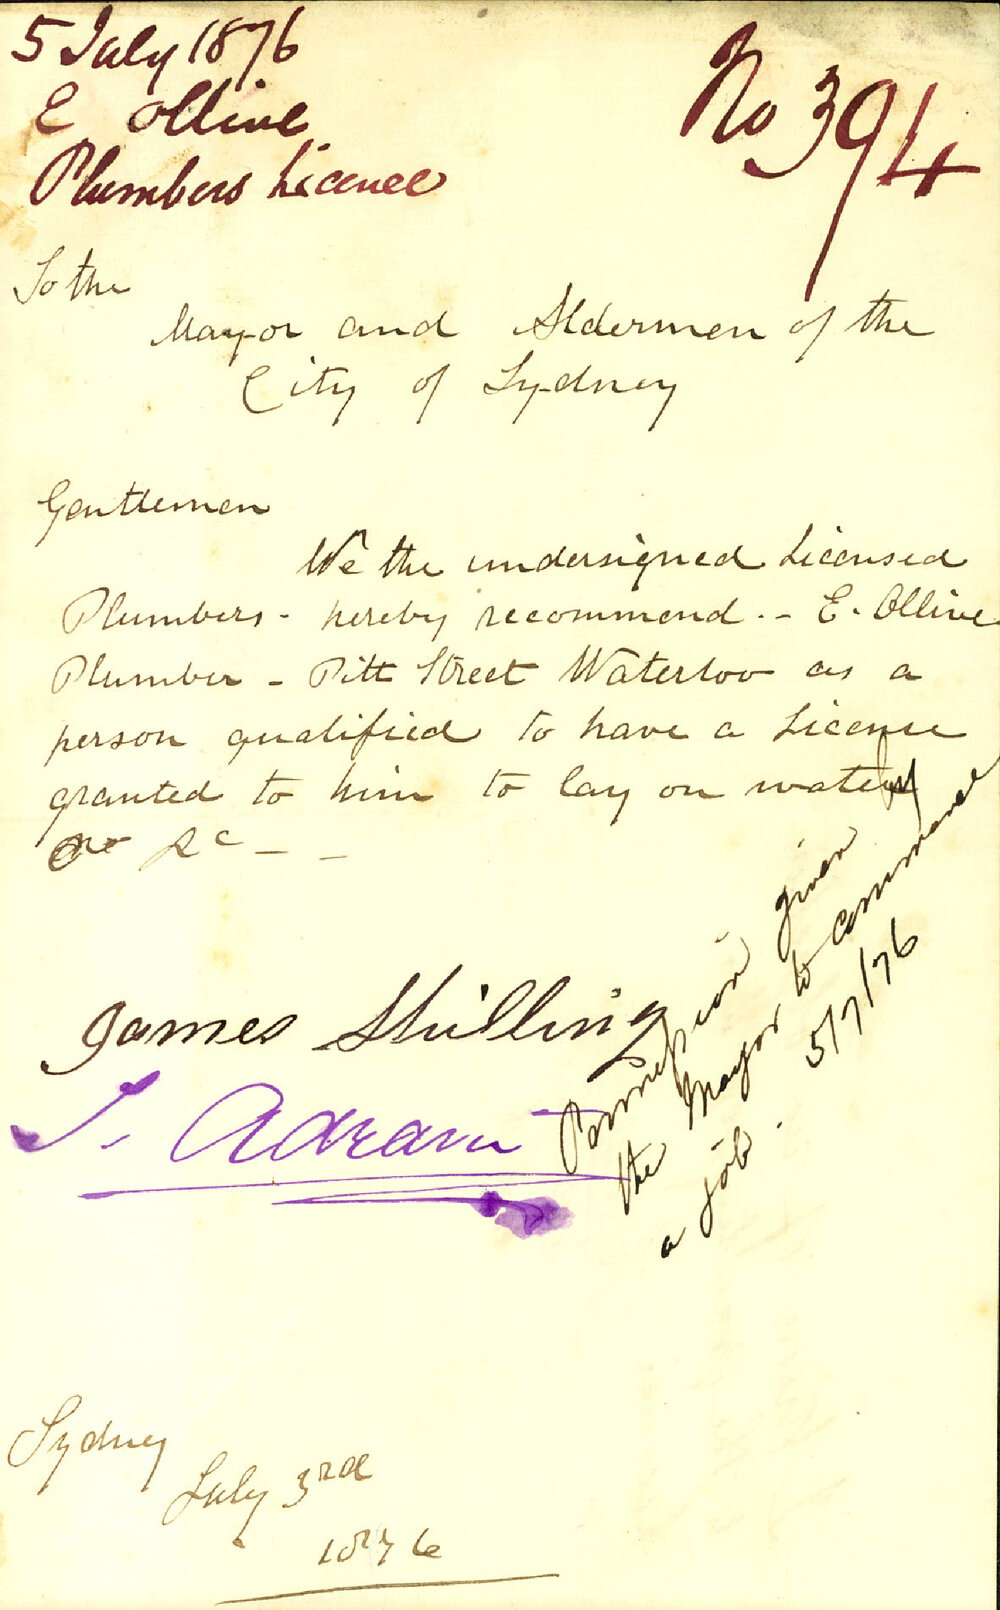 5 July 1876
E Ollive
Plumbers Licence
No 394
To the
Mayor and Aldermen of the
City of Sydney
Gentlemen
We the undersigned Licensed
Plumbers - hereby recommend - E. Ollive
Plumber - Pitt Street Waterloo as a
person qualified to have a License
granted to him to lay on water
&c - -
James Shilling
Permission given by
the Mayor to commence
a job. 5/7/76
Sydney
July 3rd
1876